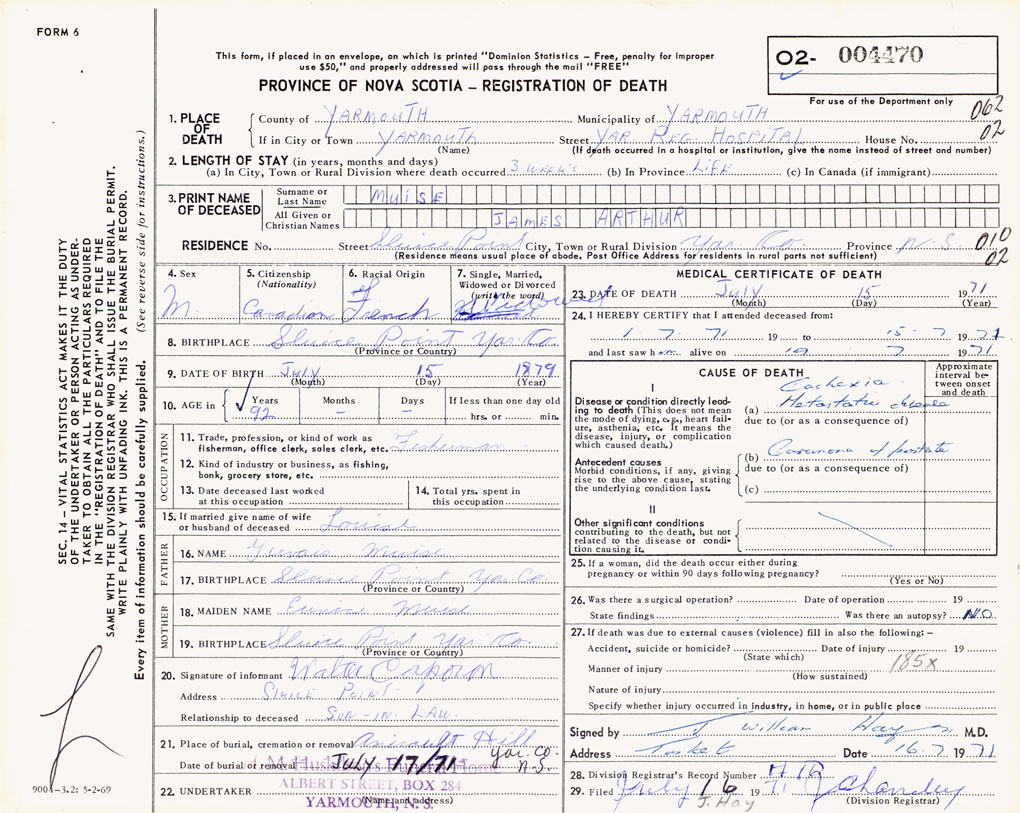 FORM 6
This form, if placed in an envelope, on which is printed "Dominion Statistics – Free, penalty for improper
use $50," and properly addressed will pass through the mail "FREE"
PROVINCE OF NOVA SCOTIA – REGISTRATION OF DEATH
O2- 004470
For use of the Department only
062
02
1. PLACE OF DEATH
County of YARMOUTH Municipality of YARMOUTH
If in City or Town YARMOUTH Street YAR REG. HOSPITAL House No.
(Name) (If death occurred in a hospital or institution, give the name instead of street and number)
2. LENGTH OF STAY (in years, months and days)
(a) In City, Town or Rural Division where death occurred 3 WEEK'S (b) In Province LIFE (c) In Canada (if immigrant)
3. PRINT NAME OF DECEASED
Surname or Last Name MUISE
All Given or Christian Names JAMES ARTHUR
RESIDENCE No. Street Sluice Point City, Town or Rural Division Yar. Co. Province N.S.
010
02
(Residence means usual place of abode. Post Office Address for residents in rural parts not sufficient)
4. Sex M.
5. Citizenship (Nationality) Canadian
6. Racial Origin French
7. Single, Married, Widowed or Divorced (write the word) Widowed
8. BIRTHPLACE Sluice Point Yar. Co.
(Province or Country)
9. DATE OF BIRTH July 15 1879
(Month) (Day) (Year)
10. AGE in Years Months Days If less than one day old
92 – – hrs. or min.
OCCUPATION
11. Trade, profession, or kind of work as
fisherman, office clerk, sales clerk, etc. Fisherman
12. Kind of industry or business, as fishing,
bank, grocery store, etc.
13. Date deceased last worked
at this occupation
14. Total yrs. spent in
this occupation
15. If married give name of wife
or husband of deceased Louise
FATHER
16. NAME Gervais Muise
17. BIRTHPLACE Sluice Point Yar Co
(Province or Country)
MOTHER
18. MAIDEN NAME Eunice Muise
19. BIRTHPLACE Sluice Point Yar. Co.
(Province or Country)
20. Signature of informant Walter
Address SLUICE POINT
Relationship to deceased SON-IN LAW.
21. Place of burial, cremation or removal Hill Yar. Co. N.S.
Date of burial or removal JULY 17/71
22. UNDERTAKER
ALBERT STREET, BOX 284
YARMOUTH, N. S.
(Name and address)
MEDICAL CERTIFICATE OF DEATH
23. DATE OF DEATH July 15 1971
(Month) (Day) (Year)
24. I HEREBY CERTIFY that I attended deceased from:
1. 7. 71 19 to 15-7 1971
and last saw h alive on 7 1971
CAUSE OF DEATH
Approximate interval between onset and death
I
Cachexia
Disease or condition directly leading to death (This does not mean the mode of dying, e.g., heart failure, asthenia, etc. It means the disease, injury, or complication which caused death.)
(a) Metastatic disease
due to (or as a consequence of)
Antecedent causes
Morbid conditions, if any, giving rise to the above cause, stating the underlying condition last.
(b) Carcinoma of prostate
due to (or as a consequence of)
(c)
II
Other significant conditions
contributing to the death, but not related to the disease or condition causing it.
25. If a woman, did the death occur either during
pregnancy or within 90 days following pregnancy?
(Yes or No)
26. Was there a surgical operation? Date of operation 19
State findings Was there an autopsy? NO
27. If death was due to external causes (violence) fill in also the following: –
Accident, suicide or homicide? Date of injury 19
(State which)
185X
Manner of injury
(How sustained)
Nature of injury
Specify whether injury occurred in industry, in home, or in public place
Signed by J William Hays M.D.
Address Tusket Date 16.7 1971
28. Division Registrar's Record Number
29. Filed July 16 1971
J. Hay
(Division Registrar)
SEC. 14 – VITAL STATISTICS ACT MAKES IT THE DUTY
OF THE UNDERTAKER OR PERSON ACTING AS UNDER-
TAKER TO OBTAIN ALL THE PARTICULARS REQUIRED
IN THE "REGISTRATION OF DEATH" AND TO FILE THE
SAME WITH THE DIVISION REGISTRAR WHO SHALL ISSUE THE BURIAL PERMIT.
WRITE PLAINLY WITH UNFADING INK. THIS IS A PERMANENT RECORD.
Every item of information should be carefully supplied. (See reverse side for instructions.)
9004-3.2: 5-2-69